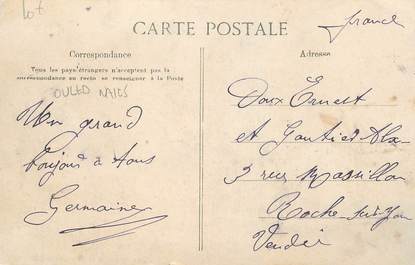 lot
France
CARTE POSTALE
Correspondance
Tous les pays étrangers n'acceptent pas la
correspondance au recto se renseigner à la Poste
OULED NAILS
Un grand
bonjour à tous
Germaine
Adresse
Doux Ernest
et Gautier Alx
3 rue Massillon
Roche-sur-Yon
Vendée